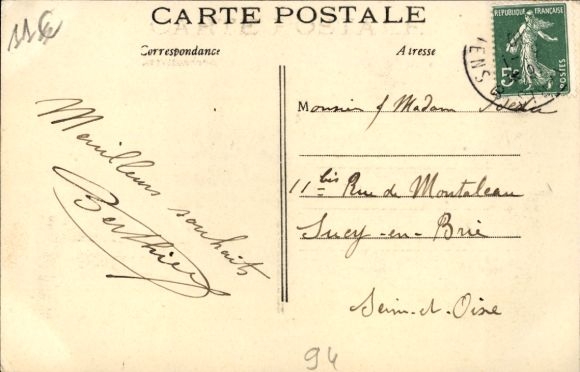 CARTE POSTALE
Correspondance
Adresse
RÉPUBLIQUE FRANÇAISE
5
POSTES
ENS
Monsieur & Madam
11 bis Rue de Montaleau
Sucy-en-Brie
Seine-et-Oise
Meilleurs souhaits
Berthier
94